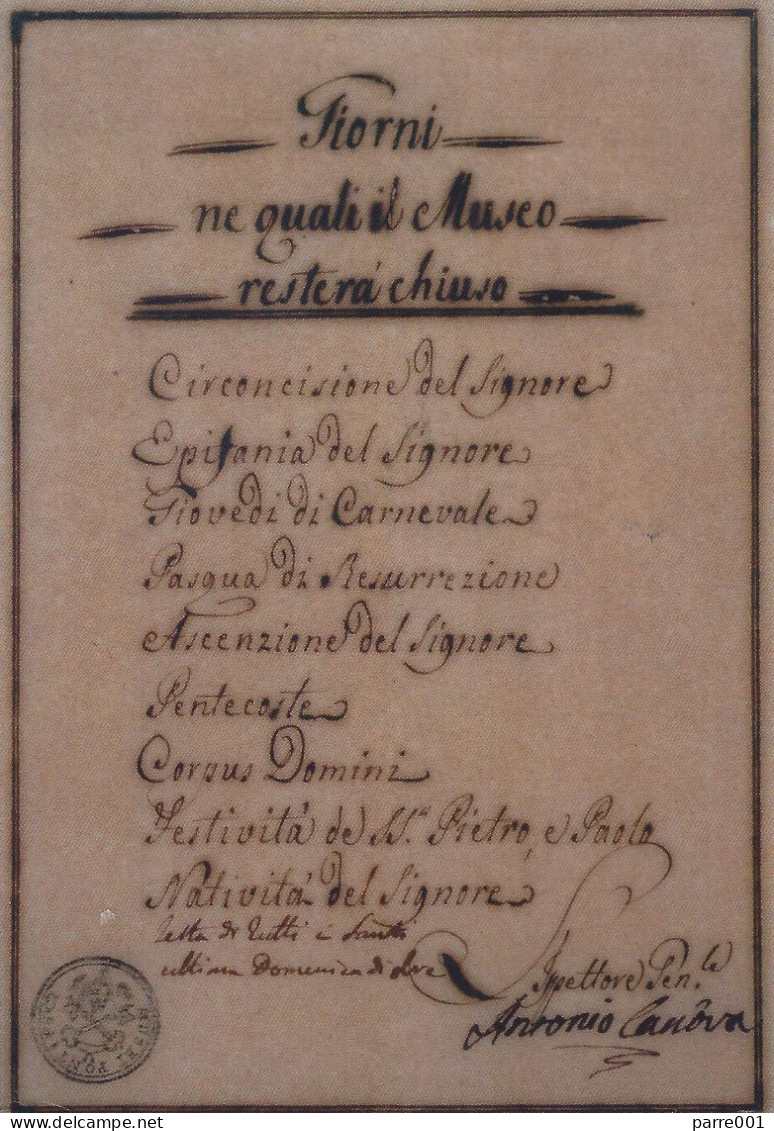 Giorni
ne quali il Museo
resterà chiuso
Circoncisione del Signore
Epifania del Signore
Giovedì di Carnevale
Pasqua di Resurrezione
Ascenzione del Signore
Pentecoste
Corpus Domini
Festività de SS.ti Pietro, e Paolo
Natività del Signore
festa di tutti i Santi
ultima Domenica di
L'Ispettore Gen.le
Antonio Canova
delcampe.net
parre001